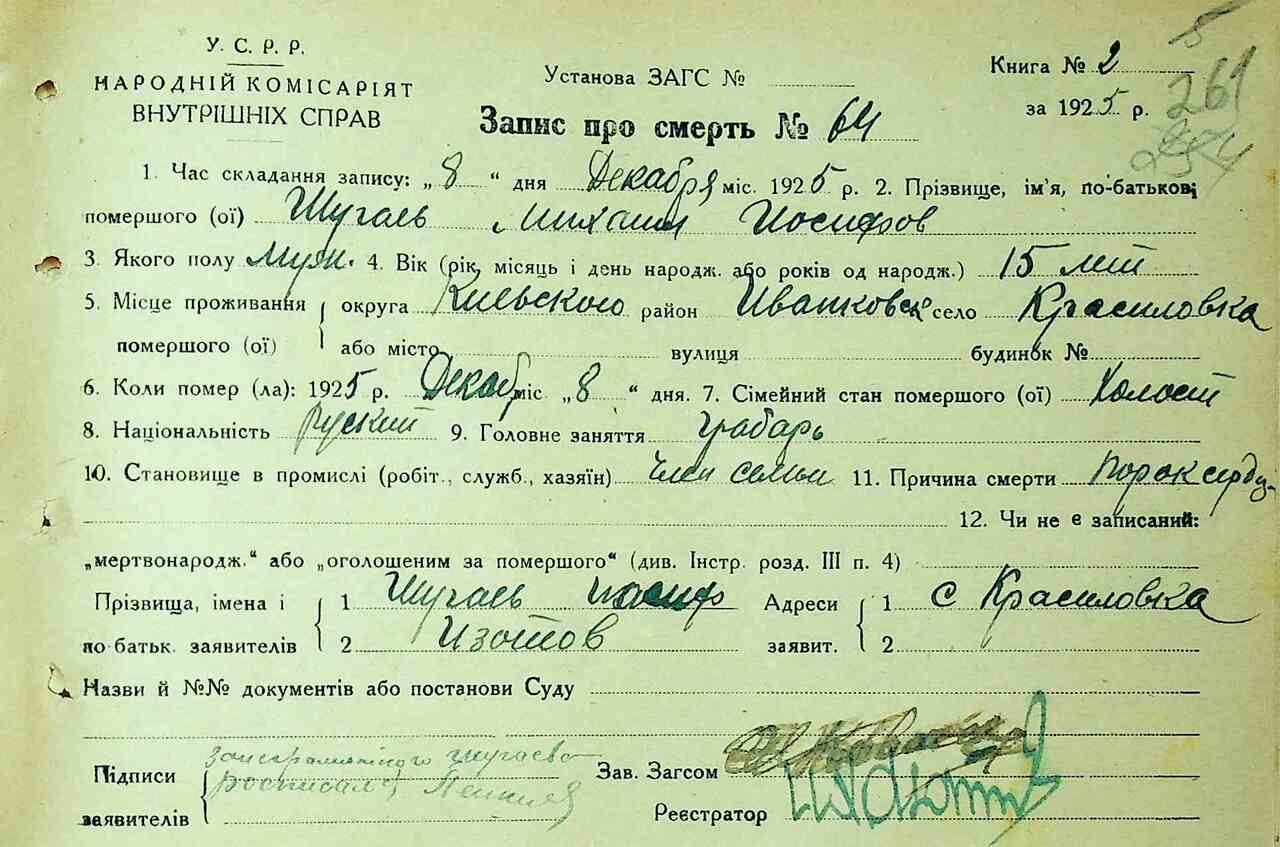 У. С. Р. Р.
НАРОДНІЙ КОМІСАРІЯТ
ВНУТРІШНІХ СПРАВ
Установа ЗАГС №
Книга № 2
за 1925 р.
5
261
Запис про смерть № 64
1. Час складання запису: „ 8 “ дня Декабря міс. 1925 р. 2. Прізвище, ім'я, по-батькові
помершого (ої) Шугаль Михаил Иосифов
3. Якого полу муж. 4. Вік (рік, місяць і день народж. або років од народж.) 15 лет
5. Місце проживання округа Киевского район Иванковск село Красиловка
помершого (ої) або місто вулиця будинок №
6. Коли помер (ла): 1925 р. Декаб міс „ 8 “ дня. 7. Сімейний стан помершого (ої) Холост
8. Національність Руский 9. Головне заняття грабарь
10. Становище в промислі (робіт., служб., хазяїн) член семьи 11. Причина смерти Порок сердц
12. Чи не є записаний:
„мертвонародж.“ або „оголошеним за помершого“ (див. Інстр. розд. III п. 4)
Прізвища, імена і 1 Шугаль Иосиф Адреси 1 с Красиловка
по-батьк. заявителів 2 Изотов заявит. 2
Назви й №№ документів або постанови Суду
Підписи за неграмотного Шугаева Зав. Загсом
заявителів росписался Реєстратор